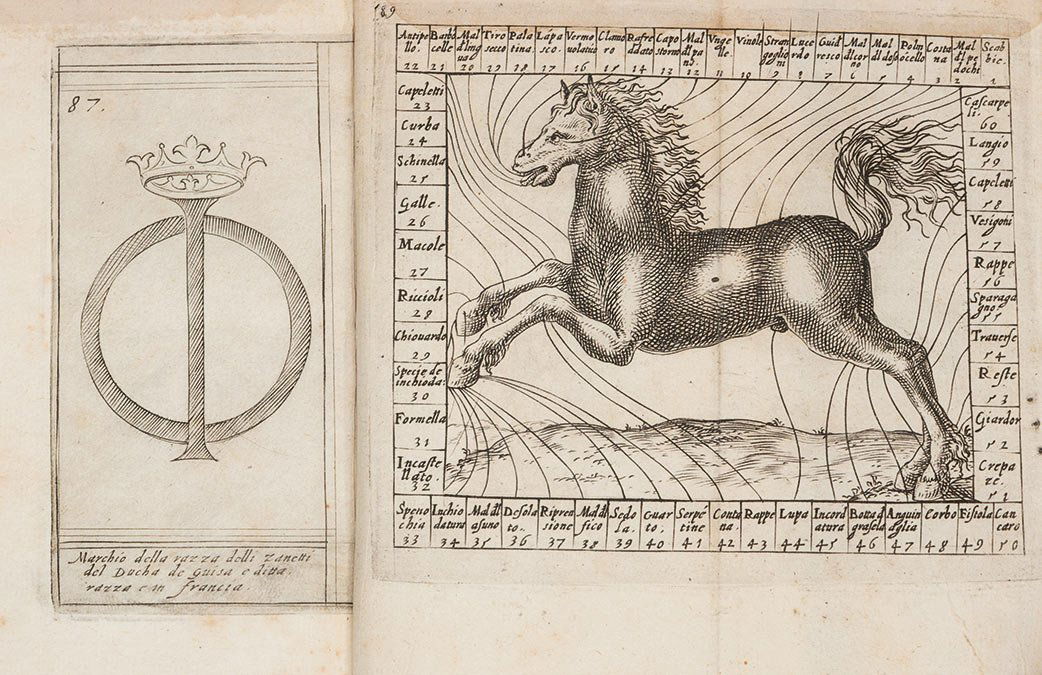 87.
Marchio della razza delli zanetti
del Ducha de Guisa e ditta
razza e in francia.
189
Antipe
llo.
22
Barbo
celle
21
Mal
dl ling
ua
20
Tiro
secco
19
Pala
tina.
18
Lapa
sco.
17
Vermo
uolatiuo
16
Clamo
ro
15
Rafre
ddato
14
Capo
storno
13
Mal
12
Vnge
lle.
11
Vinole
10
Stran
goglion
9
Luce
rdo
8
Guid
resco
7
Mal
dl cor
no
6
Mal
dl doso
5
Polm
ocello
4
Costa
na
3
Mal
dl pe
dochi
2
Scab
bie.
1
Capeletti
23
Curba
24
Schinella
25
Galle.
26
Macole
27
Riccioli
28
Chiouardo
29
Specie de
inchioda:
30
Formella
31
Incaste
llato.
32
Cascarpe
li.
60
Langio
59
Capeletti
58
Vesigoni
57
Rappe
56
Sparaga
gno
55
Trauerse
54
Reste
53
Giardor
52
Crepa
ze.
51
Speno
chia
33
Inchio
datura
34
Mal dl
asuno
35
Desola
to.
36
Ripren
sione
37
Mal dl
fico
38
Sedo
la.
39
Guar
to.
40
Serpe
tine
41
Conta
na.
42
Rappe
43
Lupa
44
Incord
atura
45
Botta d
grasela
46
Anguin
aglia
47
Corbo
48
Fistola
49
Can
caro
50